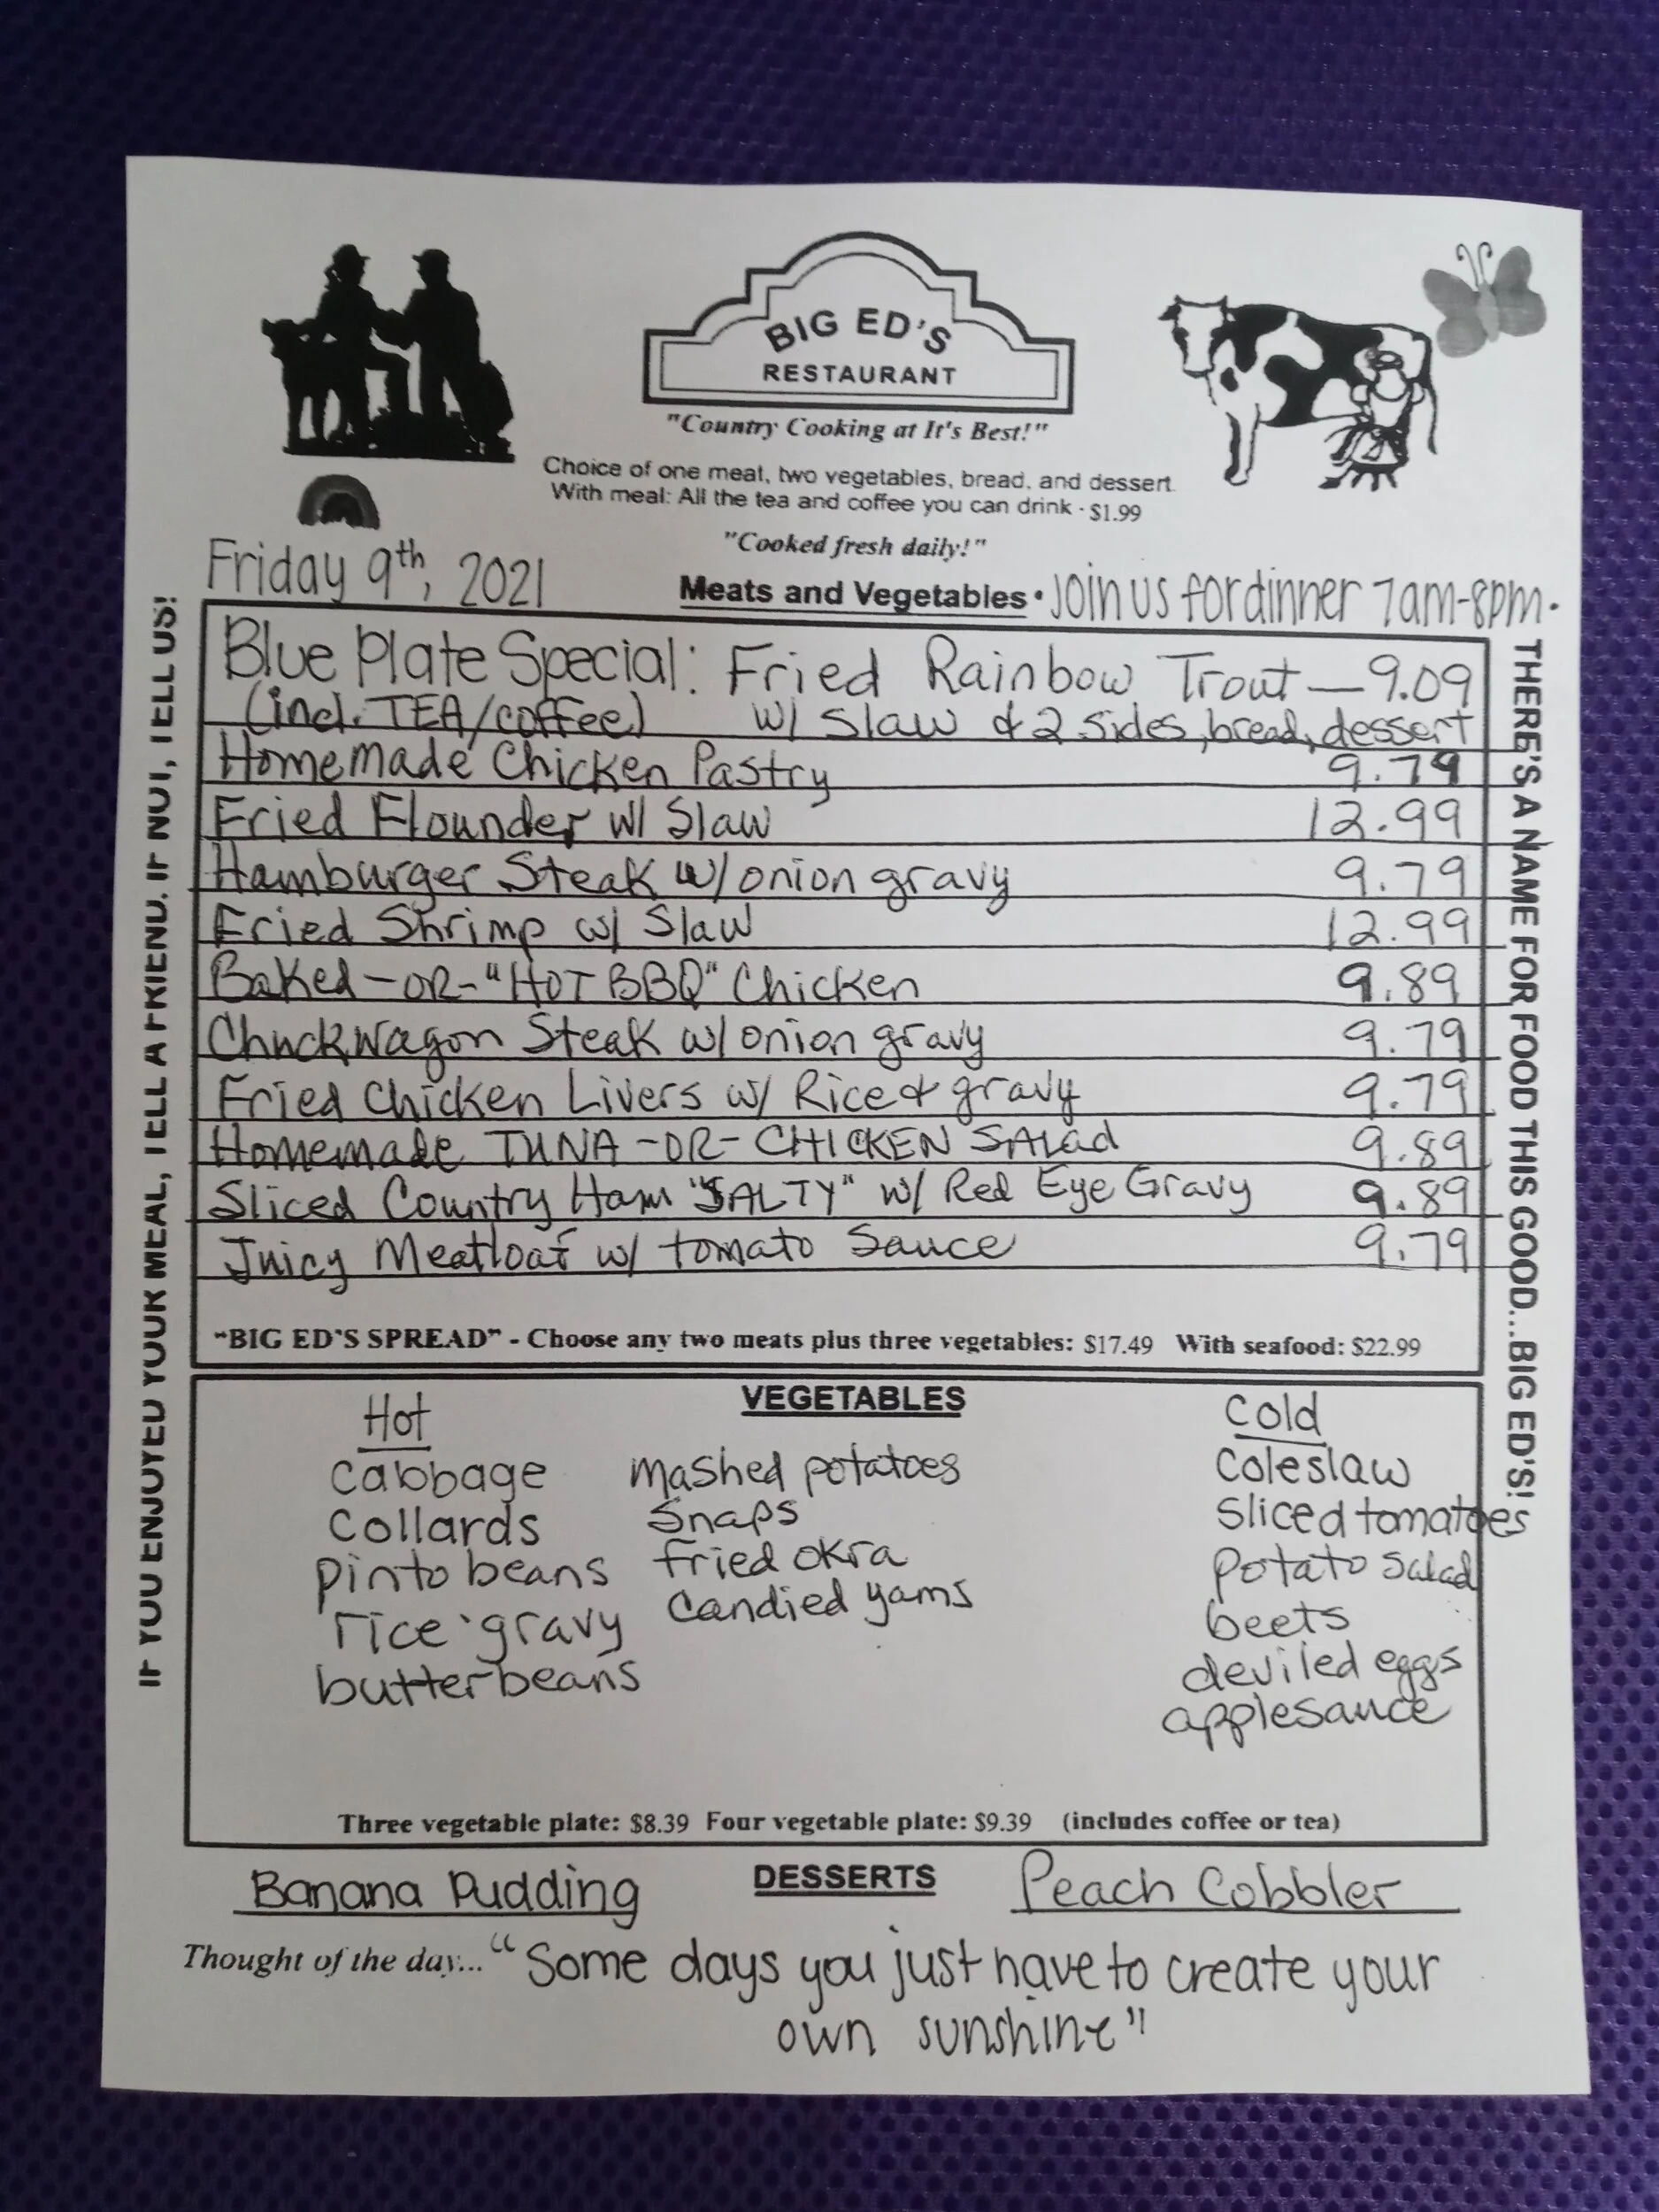 BIG ED'S
RESTAURANT
"Country Cooking at It's Best!"
Choice of one meat, two vegetables, bread, and dessert.
With meal: All the tea and coffee you can drink - $1.99
"Cooked fresh daily!"
Friday 9th, 2021
Meats and Vegetables • Join us for dinner 7am-8pm •
Blue Plate Special: Fried Rainbow Trout — 9.09
(incl. TEA/coffee) w/ Slaw & 2 sides, bread, dessert
Homemade Chicken Pastry 9.79
Fried Flounder w/ Slaw 12.99
Hamburger Steak w/ onion gravy 9.79
Fried Shrimp w/ Slaw 12.99
Baked -OR- "HOT BBQ" Chicken 9.89
Chuckwagon Steak w/ onion gravy 9.79
Fried Chicken Livers w/ Rice & gravy 9.79
Homemade TUNA -OR- CHICKEN SALad 9.89
Sliced Country Ham "SALTY" w/ Red Eye Gravy 9.89
Juicy Meatloaf w/ tomato Sauce 9.79
"BIG ED'S SPREAD" - Choose any two meats plus three vegetables: $17.49 With seafood: $22.99
IF YOU ENJOYED YOUR MEAL, TELL A FRIEND. IF NOT, TELL US!
THERE'S A NAME FOR FOOD THIS GOOD...BIG ED'S!
VEGETABLES
Hot
cabbage
collards
pinto beans
rice · gravy
butterbeans
mashed potatoes
snaps
fried okra
candied yams
Cold
coleslaw
sliced tomatoes
potato salad
beets
deviled eggs
applesauce
Three vegetable plate: $8.39 Four vegetable plate: $9.39 (includes coffee or tea)
DESSERTS
Banana Pudding
Peach Cobbler
Thought of the day... "Some days you just have to create your
own sunshine"